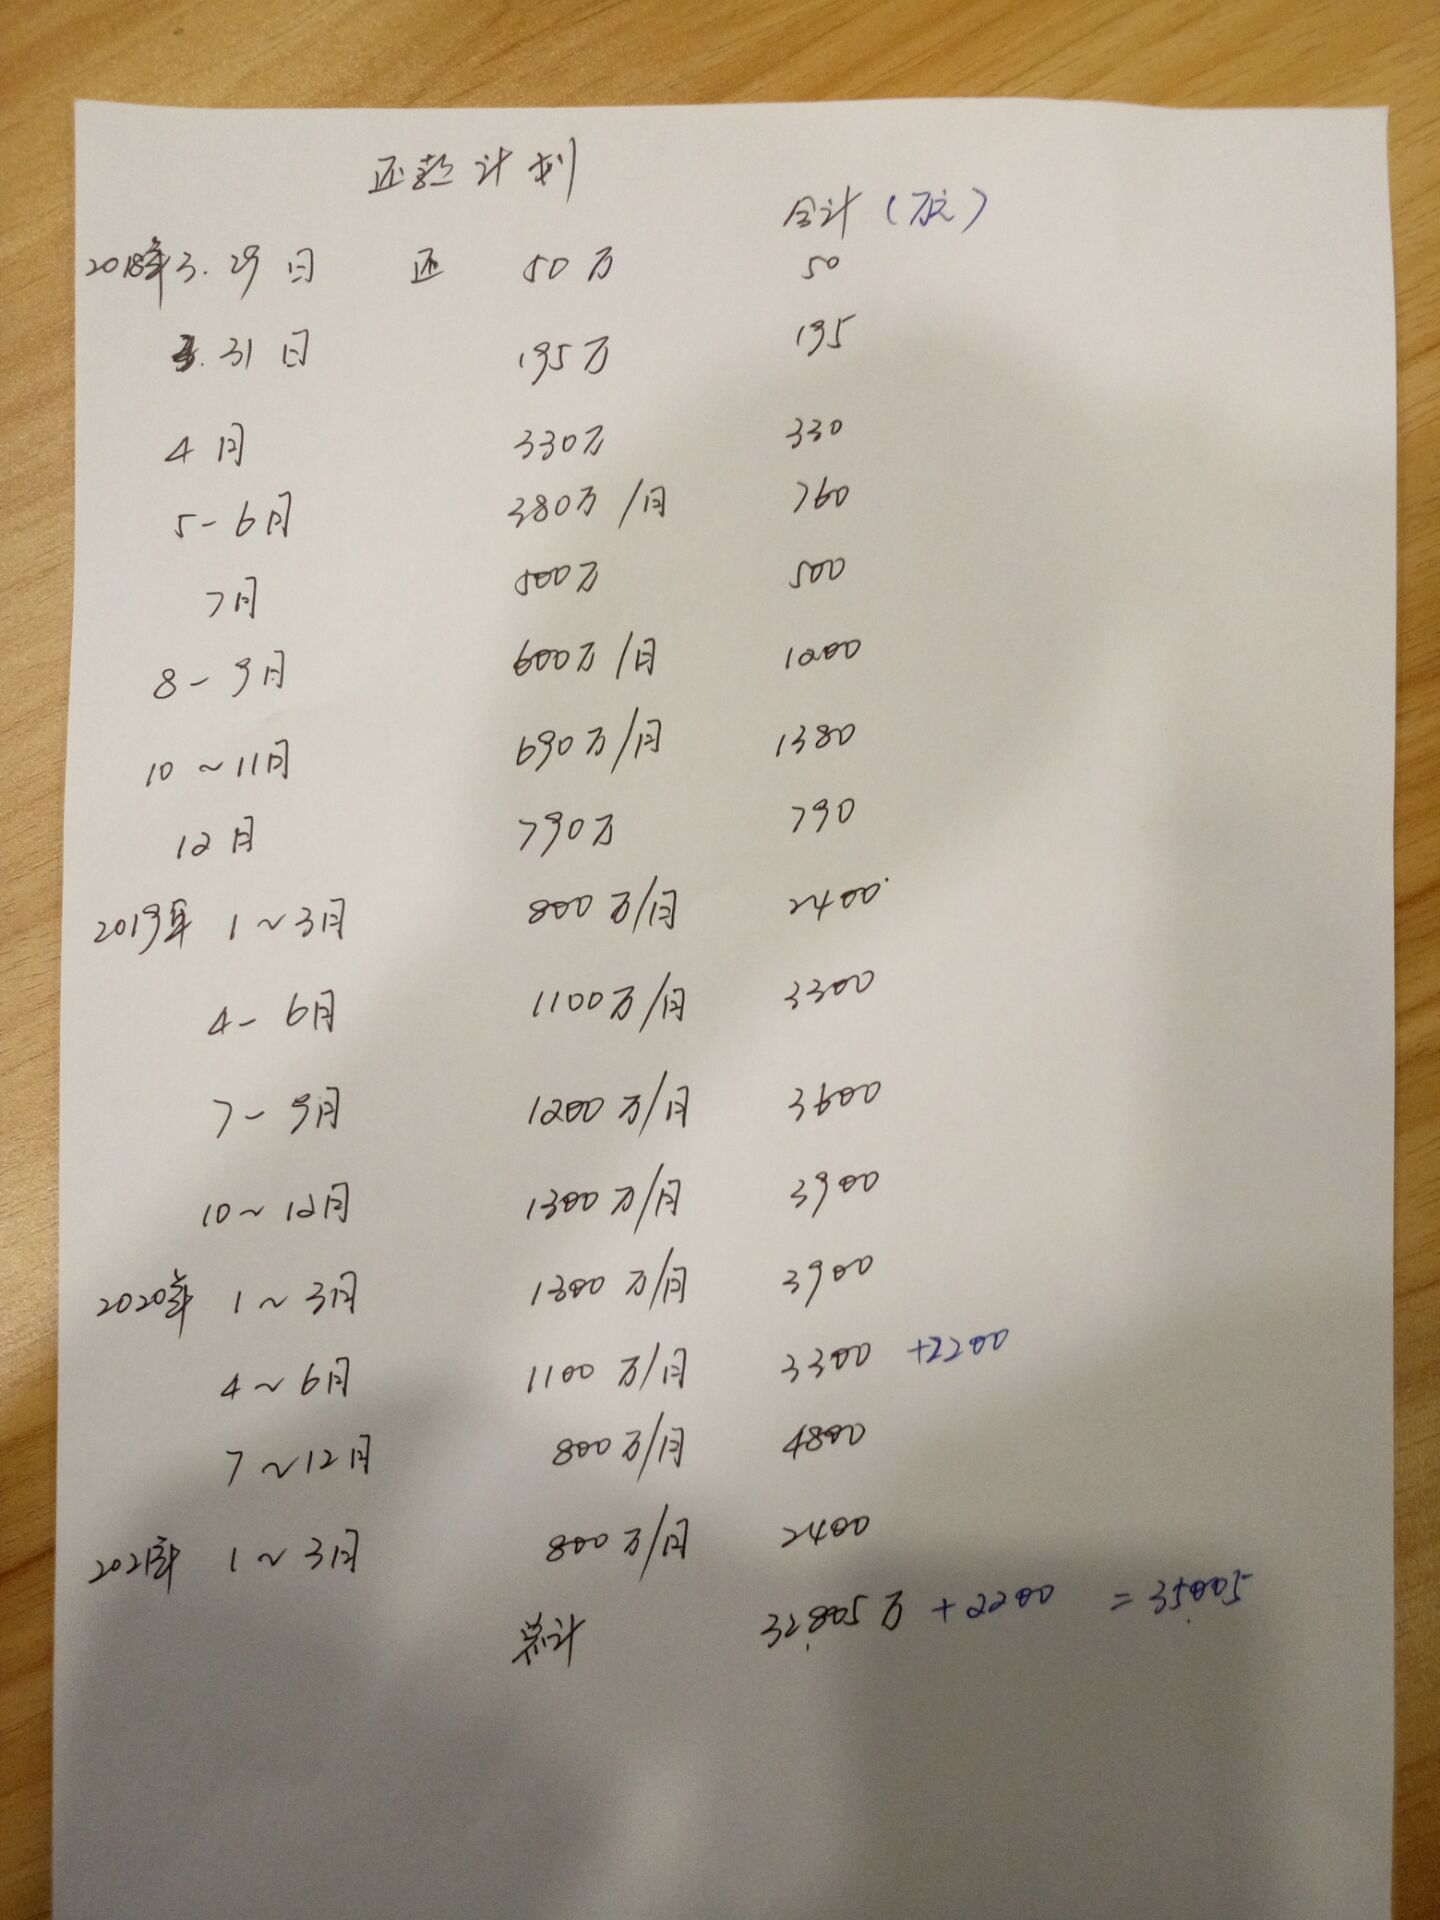 还款计划
合计(万元)
2018年3.29日 还 50万 50
3.31日 195万 195
4月 330万 330
5-6月 380万/月 760
7月 500万 500
8-9月 600万/月 1200
10~11月 690万/月 1380
12月 790万 790
2019年 1~3月 800万/月 2400
4-6月 1100万/月 3300
7-9月 1200万/月 3600
10~12月 1300万/月 3900
2020年 1~3月 1300万/月 3900
4~6月 1100万/月 3300 +2200
7~12月 800万/月 4800
2021年 1~3月 800万/月 2400
总计 32805万+2200 =35005